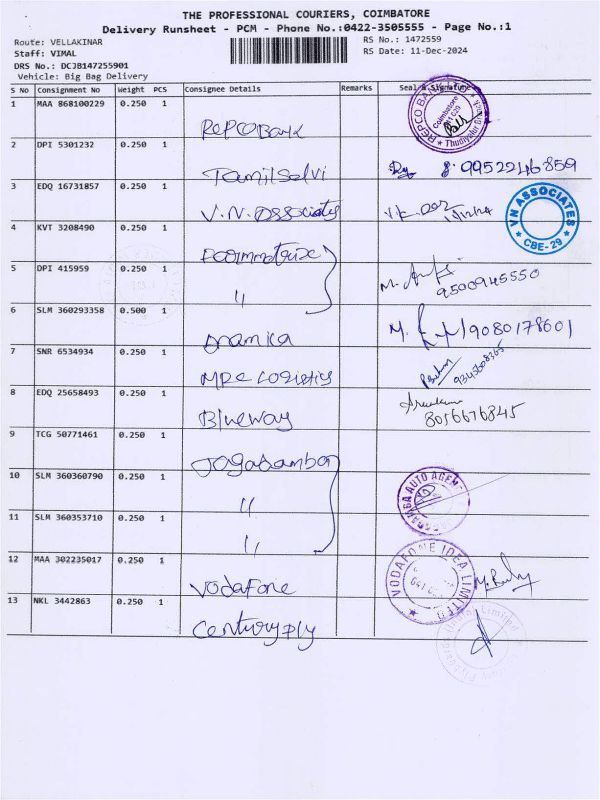 THE PROFESSIONAL COURIERS, COIMBATORE
Delivery Runsheet - PCM - Phone No.:0422-3505555 - Page No.:1
Route: VELLAKINAR
RS No.: 1472559
Staff: VIMAL
RS Date: 11-Dec-2024
DRS No.: DCJB147255901
Vehicle: Big Bag Delivery
S No Consignment No Weight PCS Consignee Details Remarks Seal & Signature
1 MAA 868100229 0.250 1 REPCO Bank
REPCO BANK
Coimbatore
2 DPI 5301232 0.250 1 Tamil Selvi 9952246859
3 EDQ 16731857 0.250 1 V.N. Associates
VN ASSOCIATES
CBE-29
4 KVT 3208490 0.250 1
5 DPI 415959 0.250 1 " 9500945550
6 SLM 360293358 0.500 1 Anamica 9080178601
7 SNR 6534934 0.250 1 MRC Logistics
8 EDQ 25658493 0.250 1 Blueway 8056676845
9 TCG 50771461 0.250 1
10 SLM 360360790 0.250 1 "
AUTO AGEN
11 SLM 360353710 0.250 1 "
12 MAA 302235017 0.250 1 Vodafone
VODAFONE IDEA LIMITED
13 NKL 3442863 0.250 1 Centuryply